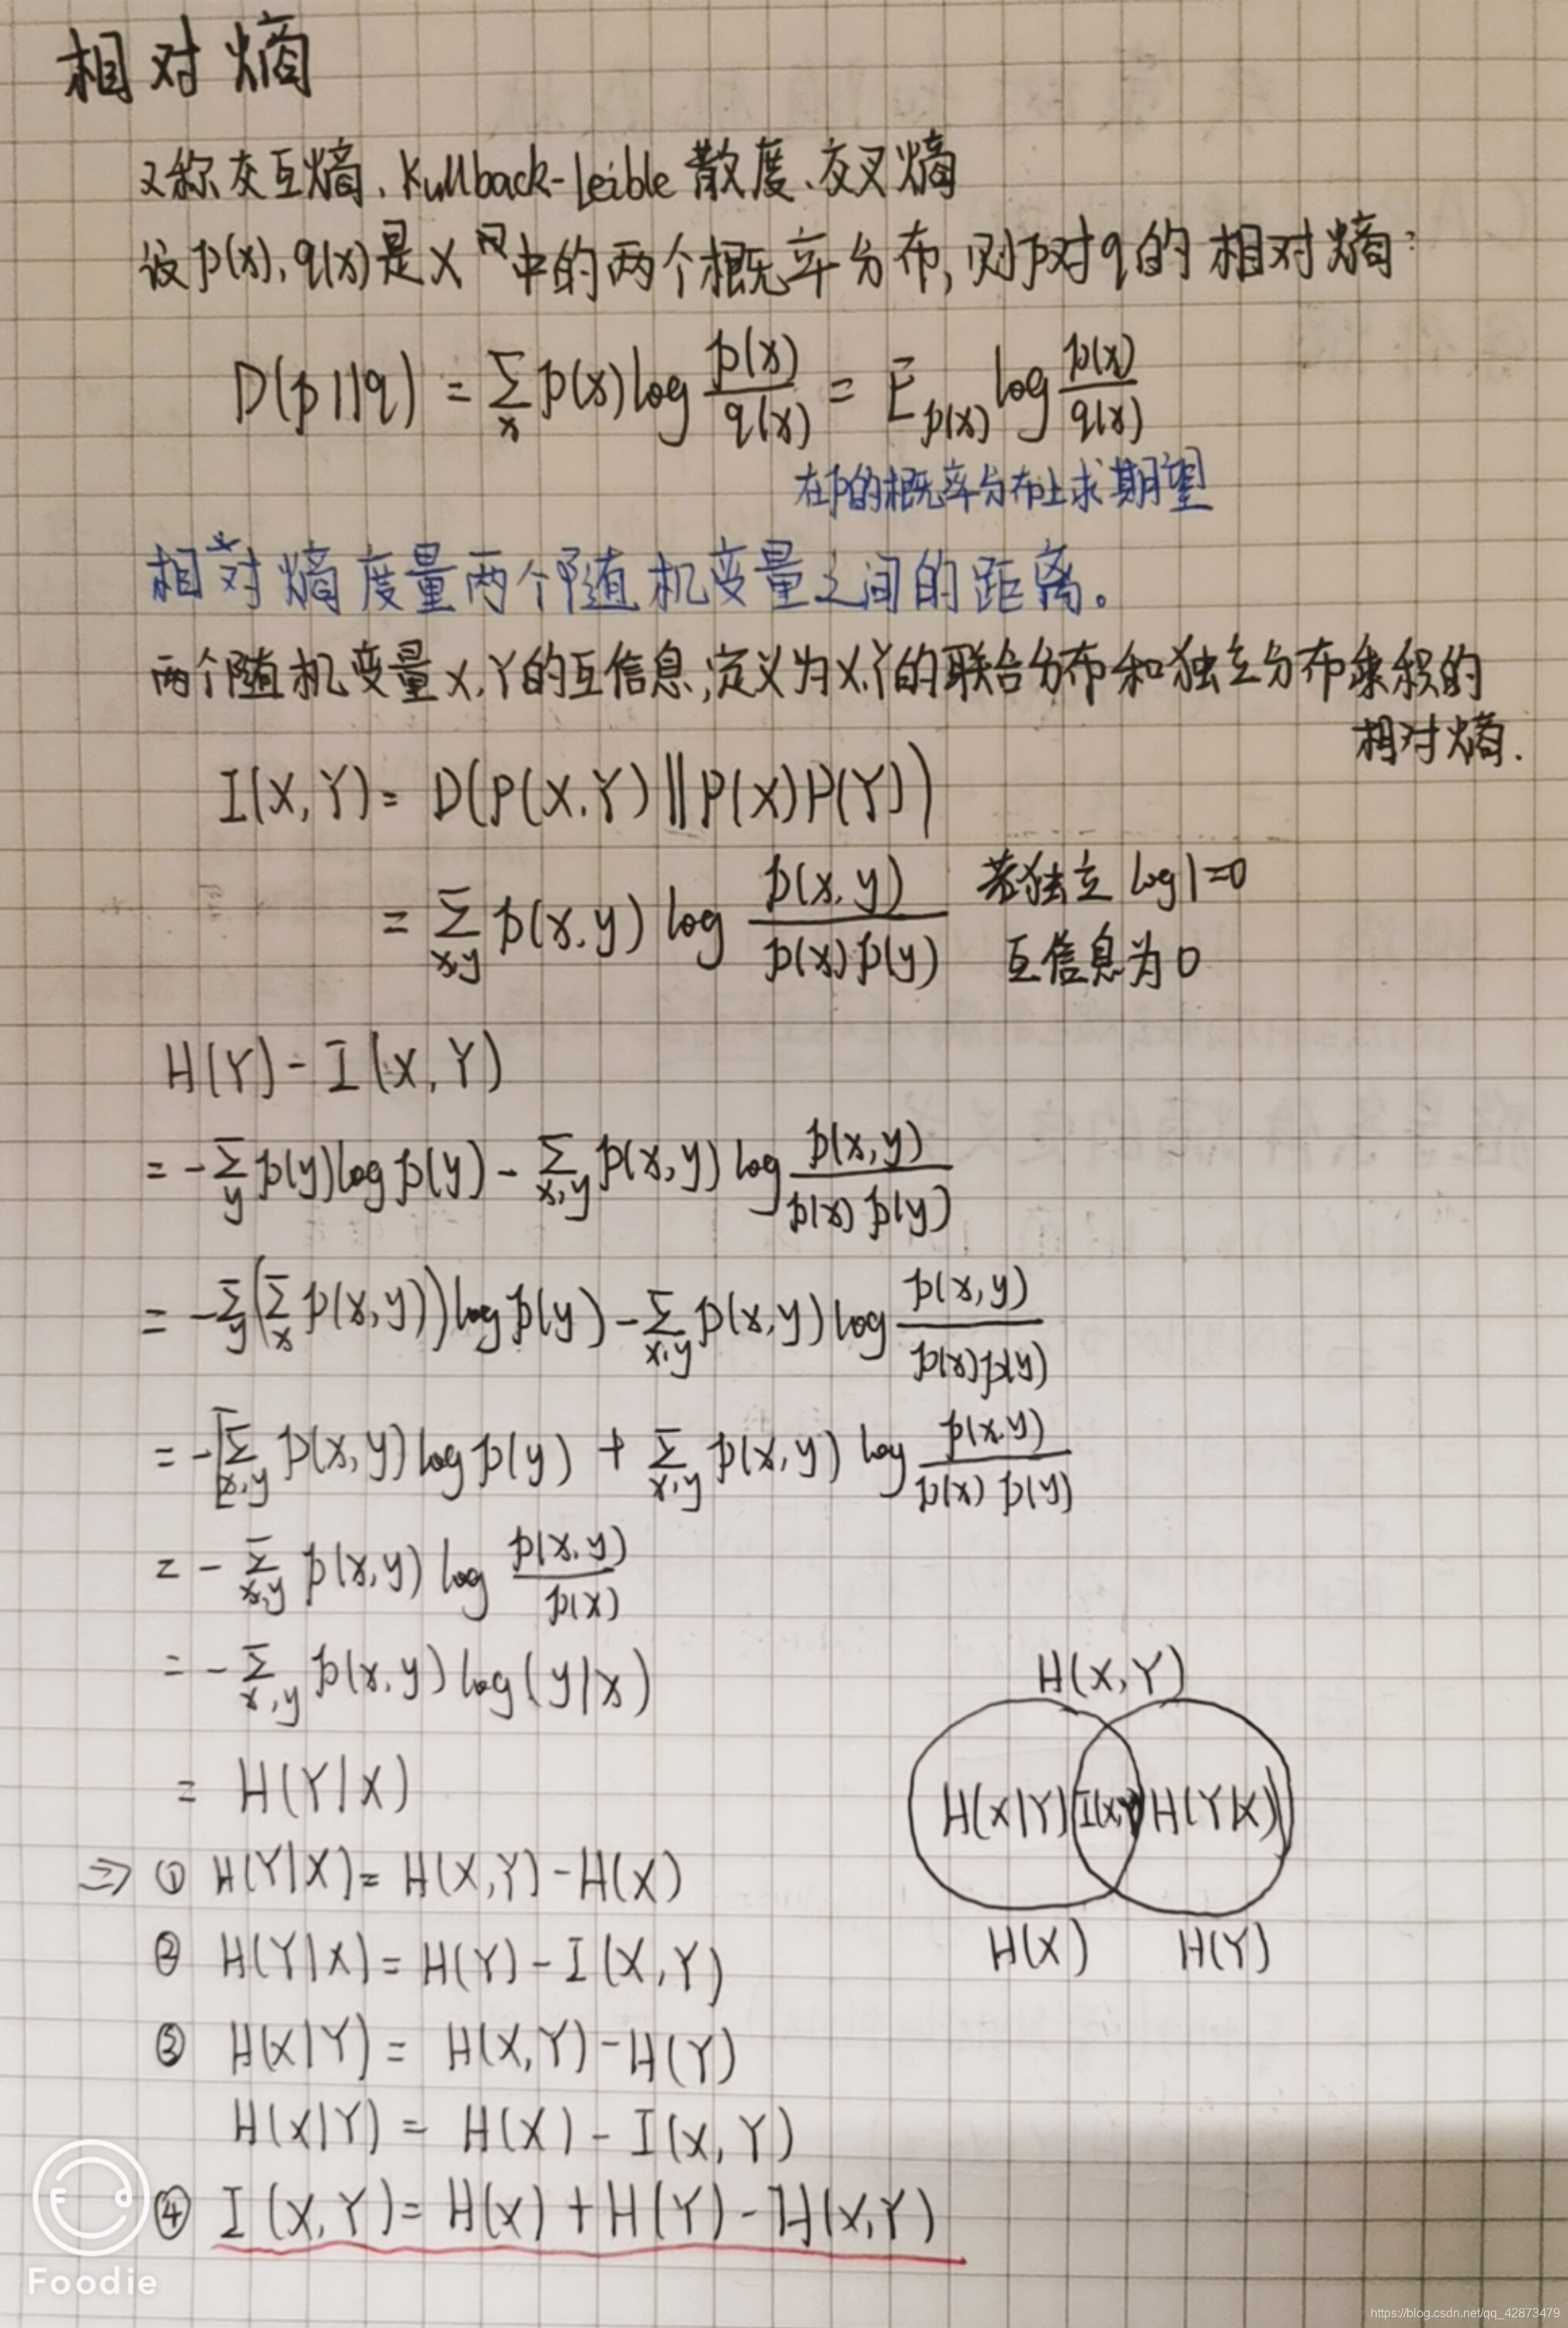 相对熵
又称交互熵、Kullback-Leible散度、交叉熵
设p(x), q(x)是X 中的两个概率分布,则p对q的相对熵:
D(p||q) = Σ_x p(x) log p(x)/q(x) = E_p(x) log p(x)/q(x)
在p的概率分布上求期望
相对熵度量两个随机变量之间的距离。
两个随机变量X,Y的互信息,定义为X,Y的联合分布和独立分布乘积的
相对熵.
I(X,Y) = D(P(X,Y) || P(X)P(Y))
= Σ_x,y p(x,y) log p(x,y)/p(x)p(y) 若独立 log1=0
互信息为0
H(Y) - I(X,Y)
= -Σ_y p(y) log p(y) - Σ_x,y p(x,y) log p(x,y)/p(x)p(y)
= -Σ_y(Σ_x p(x,y)) log p(y) - Σ_x,y p(x,y) log p(x,y)/p(x)p(y)
= -[Σ_x,y p(x,y) log p(y) + Σ_x,y p(x,y) log p(x,y)/p(x)p(y)
= -Σ_x,y p(x,y) log p(x,y)/p(x)
= -Σ_x,y p(x,y) log(y|x)
= H(Y|X)
⇒ ① H(Y|X) = H(X,Y) - H(X)
② H(Y|X) = H(Y) - I(X,Y)
③ H(X|Y) = H(X,Y) - H(Y)
H(X|Y) = H(X) - I(X,Y)
④ I(X,Y) = H(X) + H(Y) - H(X,Y)
H(X,Y)
H(X|Y) I(X,Y) H(Y|X)
H(X) H(Y)
Foodie
https://blog.csdn.net/qq_42873479